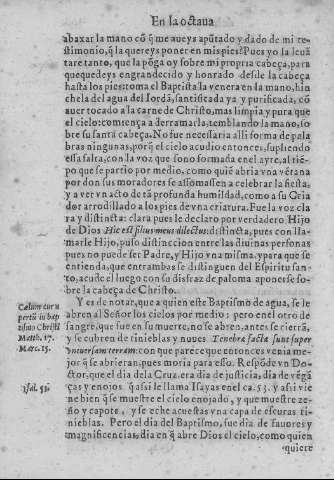 En la octaua
abaxar la mano cõ q̃ me aueys apũtado y dado de mi tes
timonio, q̃ la quereys poner en mis pies? Pues yo la leuã
tare tanto, que la põga oy sobre mi propria cabeça, para
que quedeys engrandecido y honrado desde la cabeça
hasta los pies: toma el Baptista la venera en la mano, hin
chela del agua del Iordã, santificada ya y purificada, cõ
auer tocado a la carne de Christo, mas limpia y pura que
el cielo: comença a derramarla, temblando la mano, so
bre su santa cabeça. No fue necessaria alli forma de pala
bras ningunas, porq̃ el cielo acudio entonces, supliendo
essa falta, con la voz que sono formada en el ayre, al tiẽ-
po que se partio por medio, como quiẽ abria vna vẽtana
por don sus moradores se assomassen a celebrar la fiesta,
y a ver vn acto de tã profunda humildad, como a su Cria
dor arrodillado a los pies de vna criatura. Fue la voz cla
ra y distincta: clara pues le declaro por verdadero Hijo
de Dios Hic est filius meus dilectus: distincta, pues con lla-
marle Hijo, puso distinccion entre las diuinas personas
pues no puede ser Padre, y Hijo vna misma, y para que se
entienda, que entrambas se distinguen del Espiritu san-
to, acude el luego con su disfraz de paloma a ponerse so-
bre la cabeça de Christo.
Y es de notar, que a quien este Baptismo de agua, se le
abren al Señor los cielos por medio: pero en el otro de
sangre, que fue en su muerte, no se abren, antes se cierrã,
y se cubren de tinieblas y nuues Tenebræ factæ sunt super
vniuersam terram: con que parece que entonces venia me-
jor q̃ se abrieran, pues moria para esso. Respõde vn Do-
ctor, que el dia de la Cruz, era dia de justicia, dia de vẽgã
ças y enojos q̃ assi le llama Isayas en el ca. 53. y assi vie
ne bien q̃ se muestre el cielo enojado, y que muestre ze-
ño y capote, y se eche acuestas vna capa de escuras ti-
nieblas. Pero el dia del Baptismo, fue dia de fauores y
magnificencias, dia en q̃ abre Dios el cielo, como quien
quiere
Cælum cur a
pertũ in bap
tismo Christi
Matth. 17.
Marc. 15.
Isai. 53.